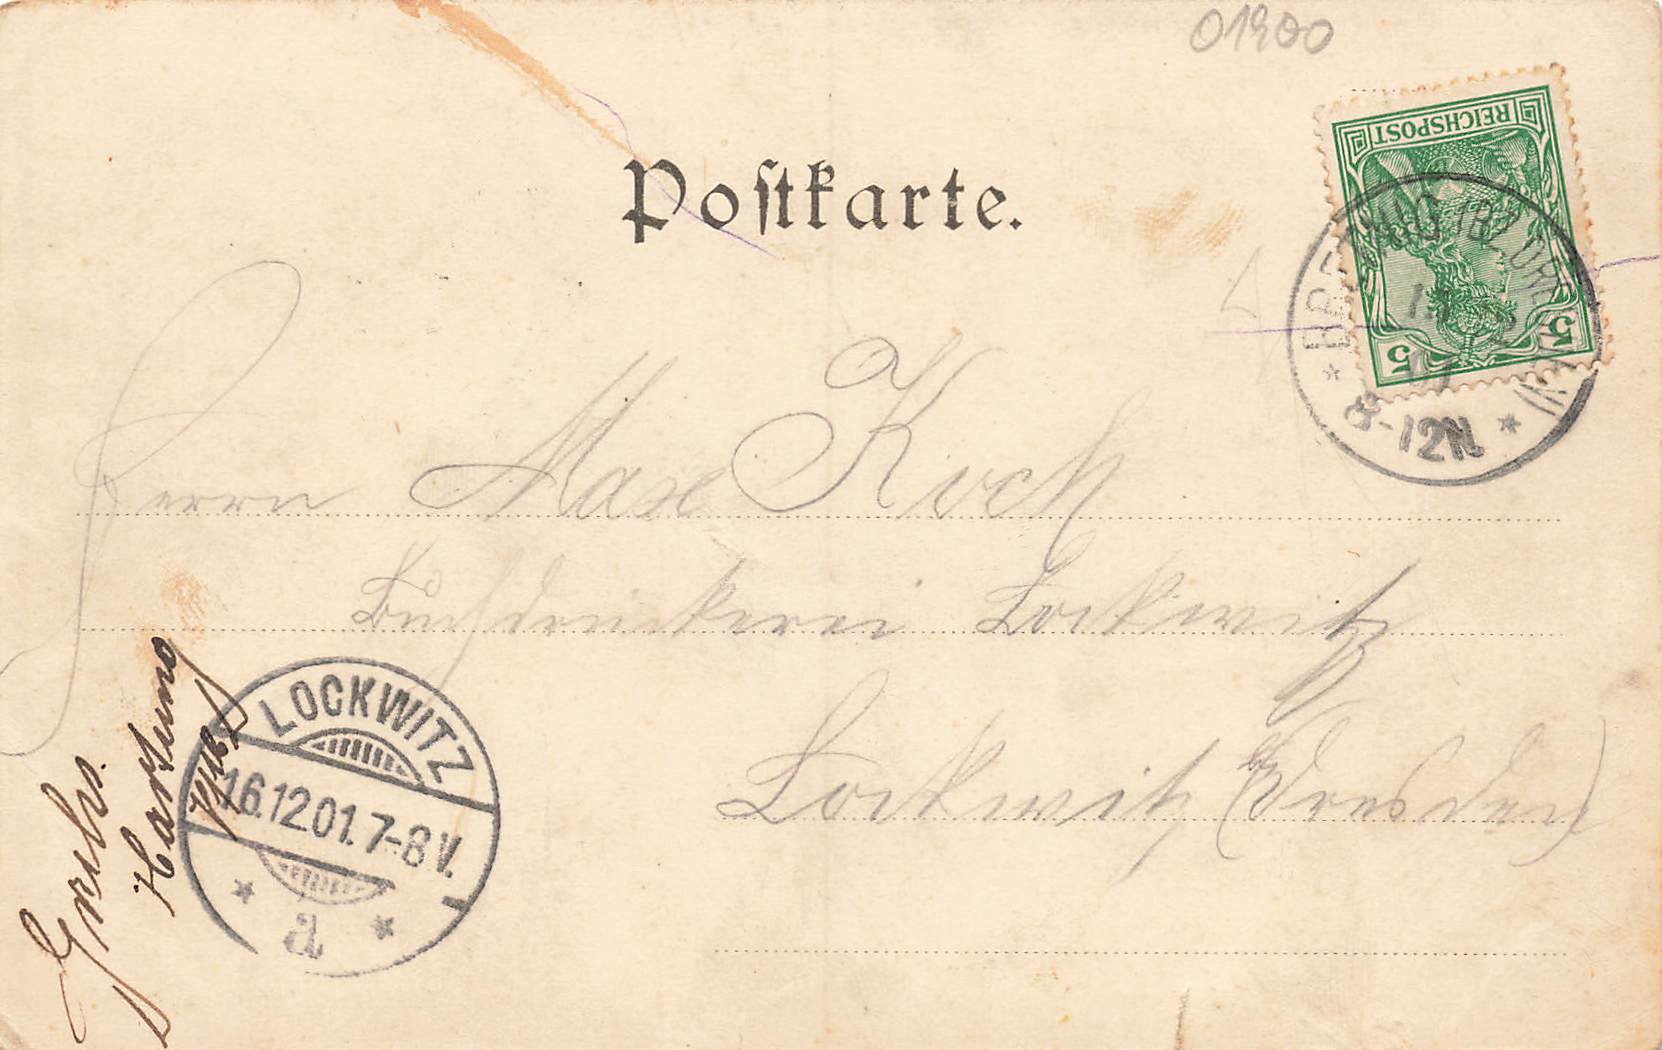 01900
Postkarte.
REICHSPOST
5 5
(BZ. DRESDEN)
01
8-12N
Herrn Max Koch
Buchdruckerei Lockwitz
Lockwitz (Dresden)
LOCKWITZ
16.12.01. 7-8 V.
a
Hartung